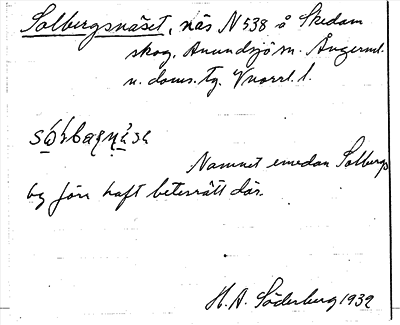 Solbergsnäset, näs N 538 å Skedom
skog, Anundsjö sn. Ångerml.
n. doms. tg. Vnorrl. l.
Namnet emedan Solbergs
by förr haft betesrätt där.
H. A. Söderberg 1932